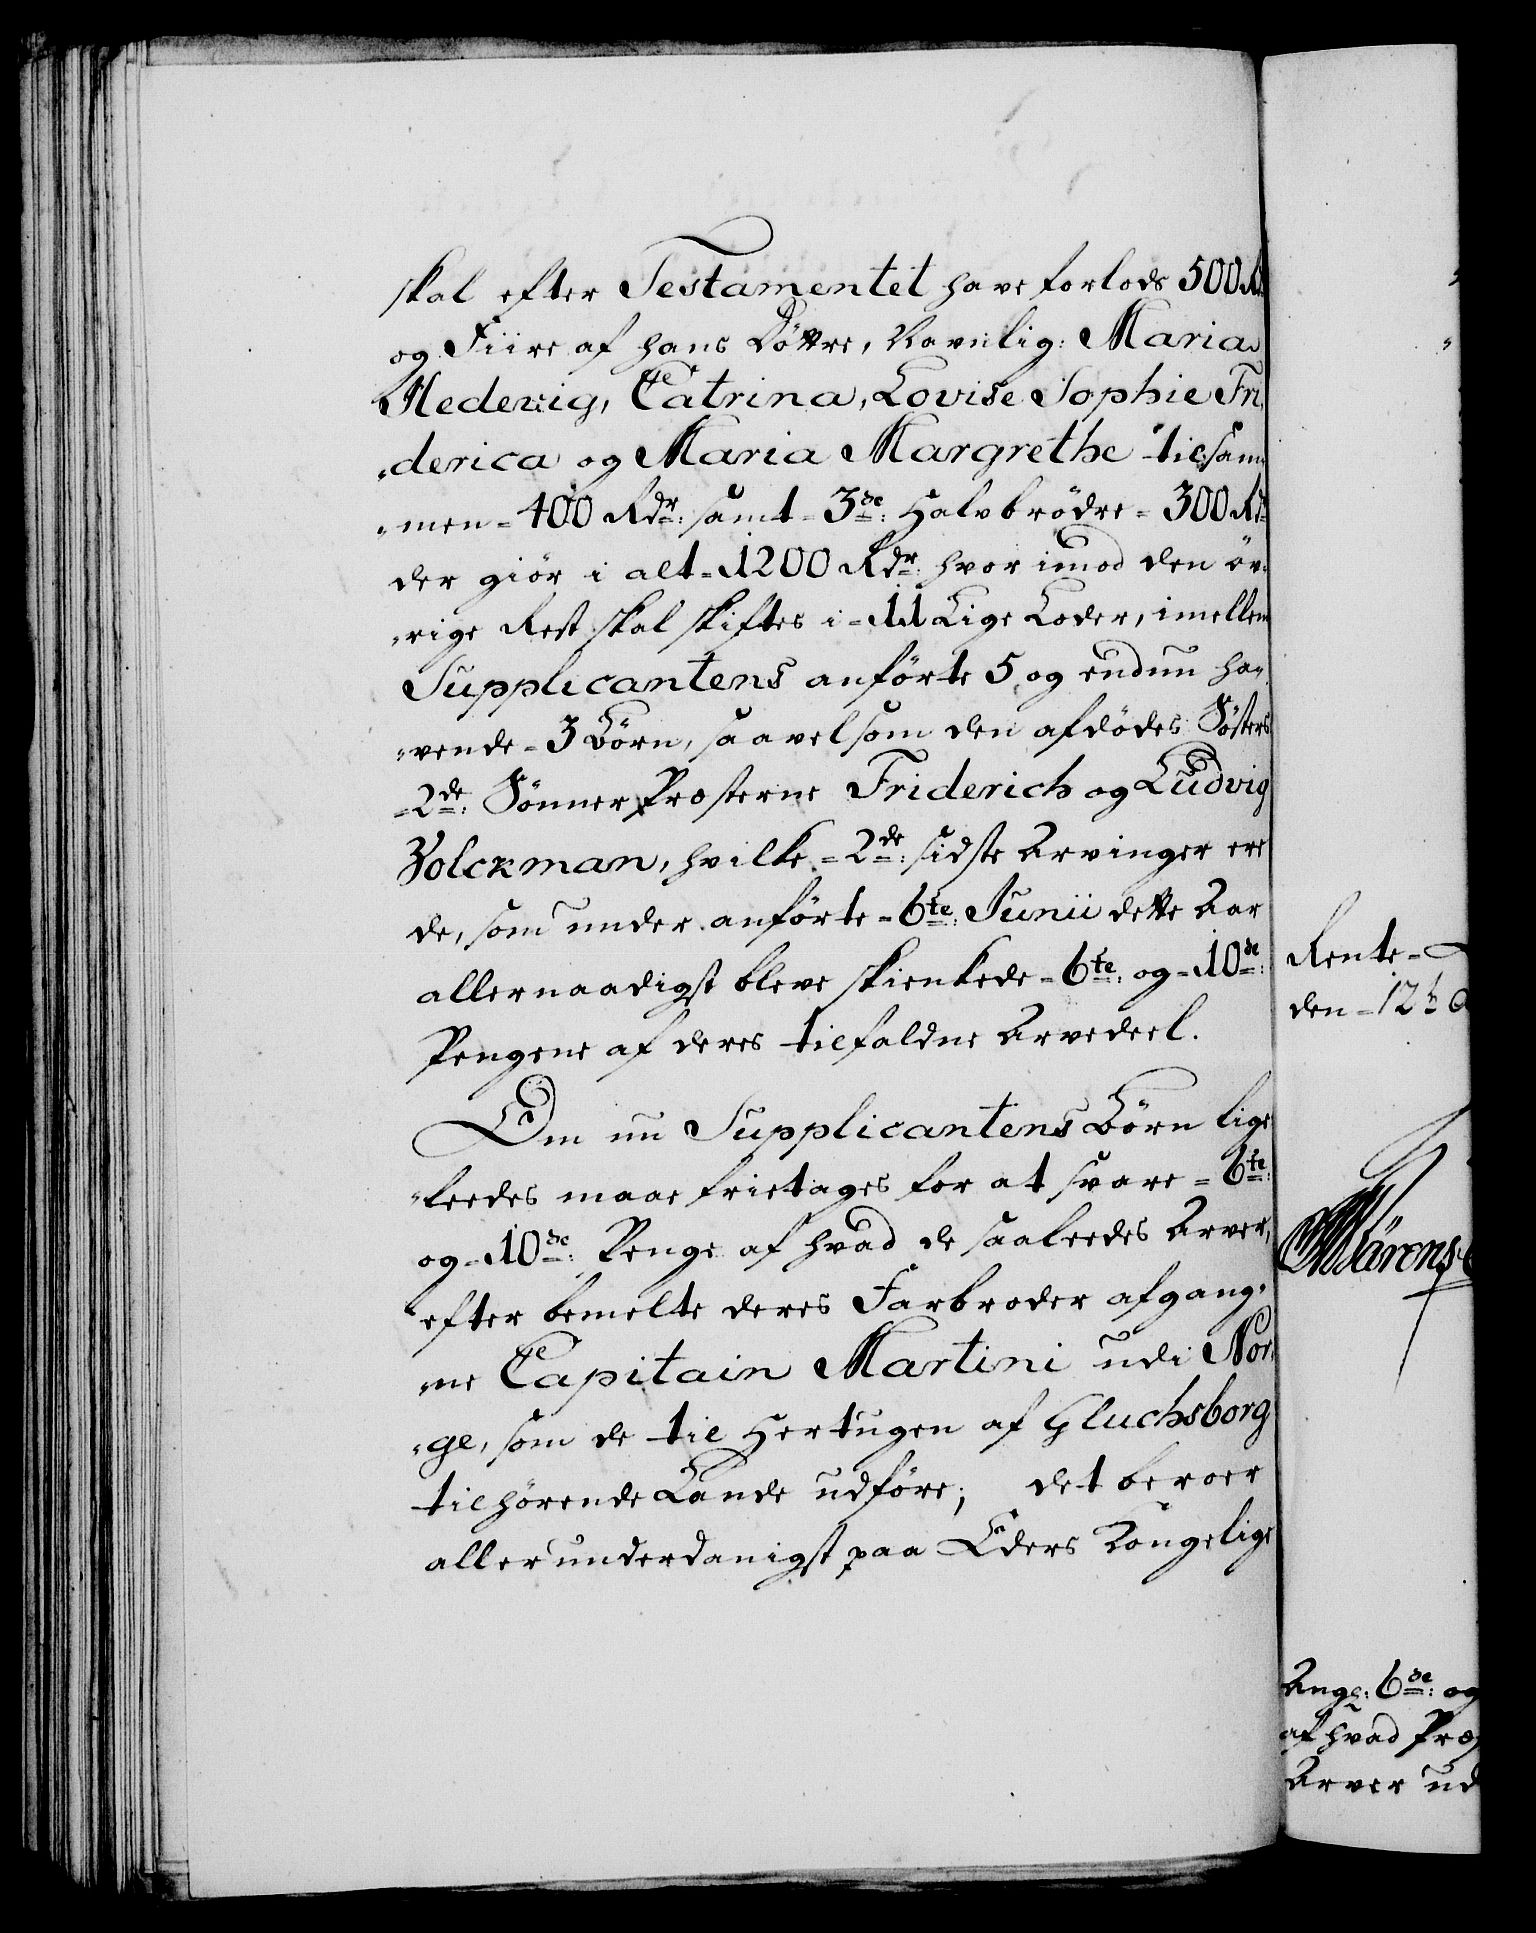 skal efter Testamentet have forlods 500 Rdr:
og Fiire af hans Döttre, Navnlig: Maria
Hedevig, Catrina, Lovise Sophie Fri„
„derica og Maria Margrethe tilsam„
„men = 400 Rdr: samt = 3de: Halvbrödre = 300 Rdr:
der giör i alt = 1200 Rdr: hvor imod den öv„
„rige Rest skal skiftes i = 11 Lige Loder, imellem
Supplicantens anförte 5, og endnu ha„
„vende = 3 Börn, saavelsom den afdödes Sösters
= 2de: Sönner Præsterne Friderich og Ludvig
Volckman, hvilke = 2de: sidste Arvinger ere
de, som under anförte = 6te: Junii dette Aar
allernaadigst bleve skienkede = 6te: og = 10de:
Pengene af deres tilfaldne Arvedeel.
Om nu Supplicantens Börn lige
„leedes maae frietages for at svare = 6te:
og = 10de: Penge af hvad de saaleedes Arver,
efter bemelte deres Farbroder afgang„
„ne Capitain Martini udi Nor„
„ge, som de til Hertugen af Gluchsborg
tilhörende Lande udföre; det beroer
allerunderdanigst paa Eders Kongelige
Rente =
den = 12t
Ang: 6te: og
af hvad Præs
Arver ud